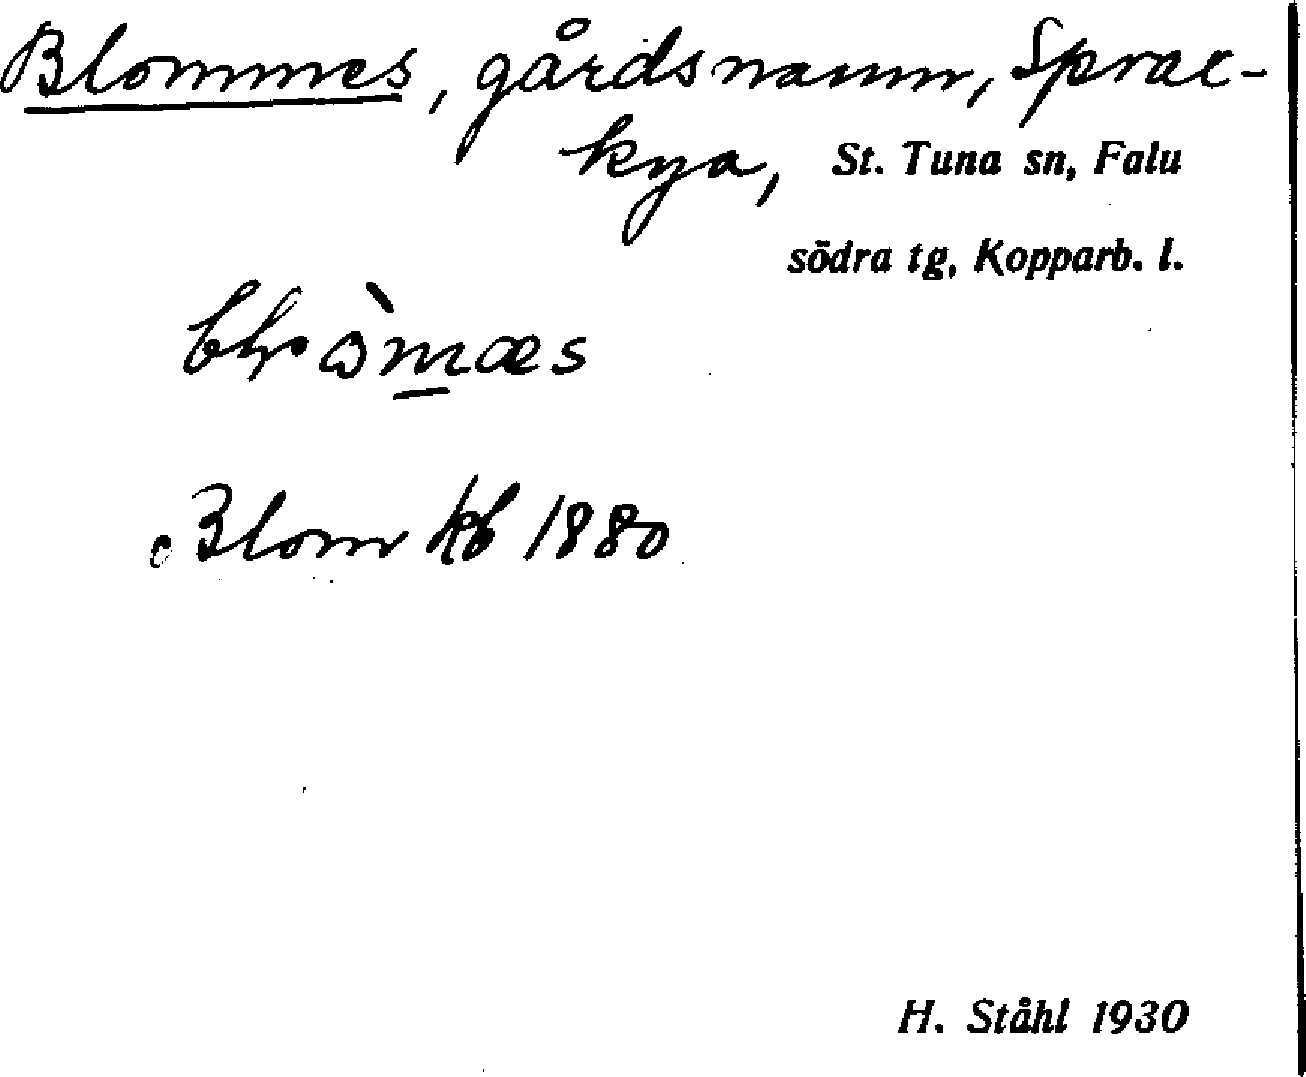 Blommes, gårdsnamn, Sprac-
kya, St. Tuna sn, Falu
södra tg, Kopparb. l.
Blom kb 1880
H. Ståhl 1930